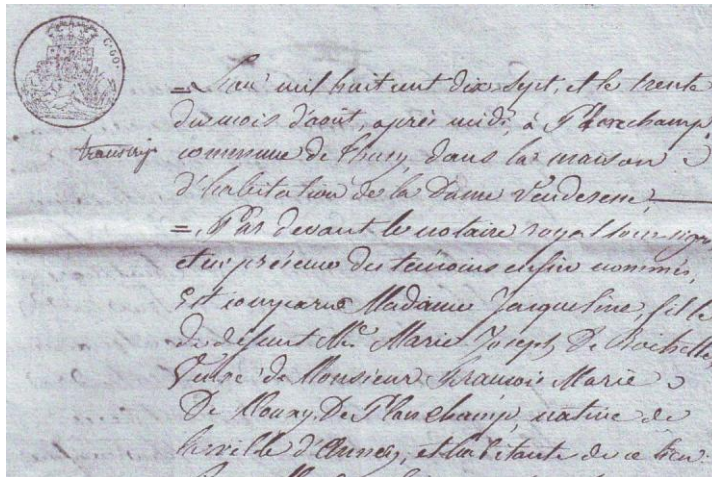 C. 60.
= L'an mil huit cent dix sept, et le trente
du mois d'août, après midi, à Planchamp
commune de Thusy, dans la maison
d'habitation de la Dame Venderesse,
= Par devant le notaire royal soussigné
et en présence des témoins enfin nommés,
Est comparue Madame Jacqueline, fille
de défunt Mr. Marie Joseph De Rochette,
Veuve de Monsieur François Marie
De Mouxy De Planchamp, native de
la ville d'Annecy, et habitante de ce lieu